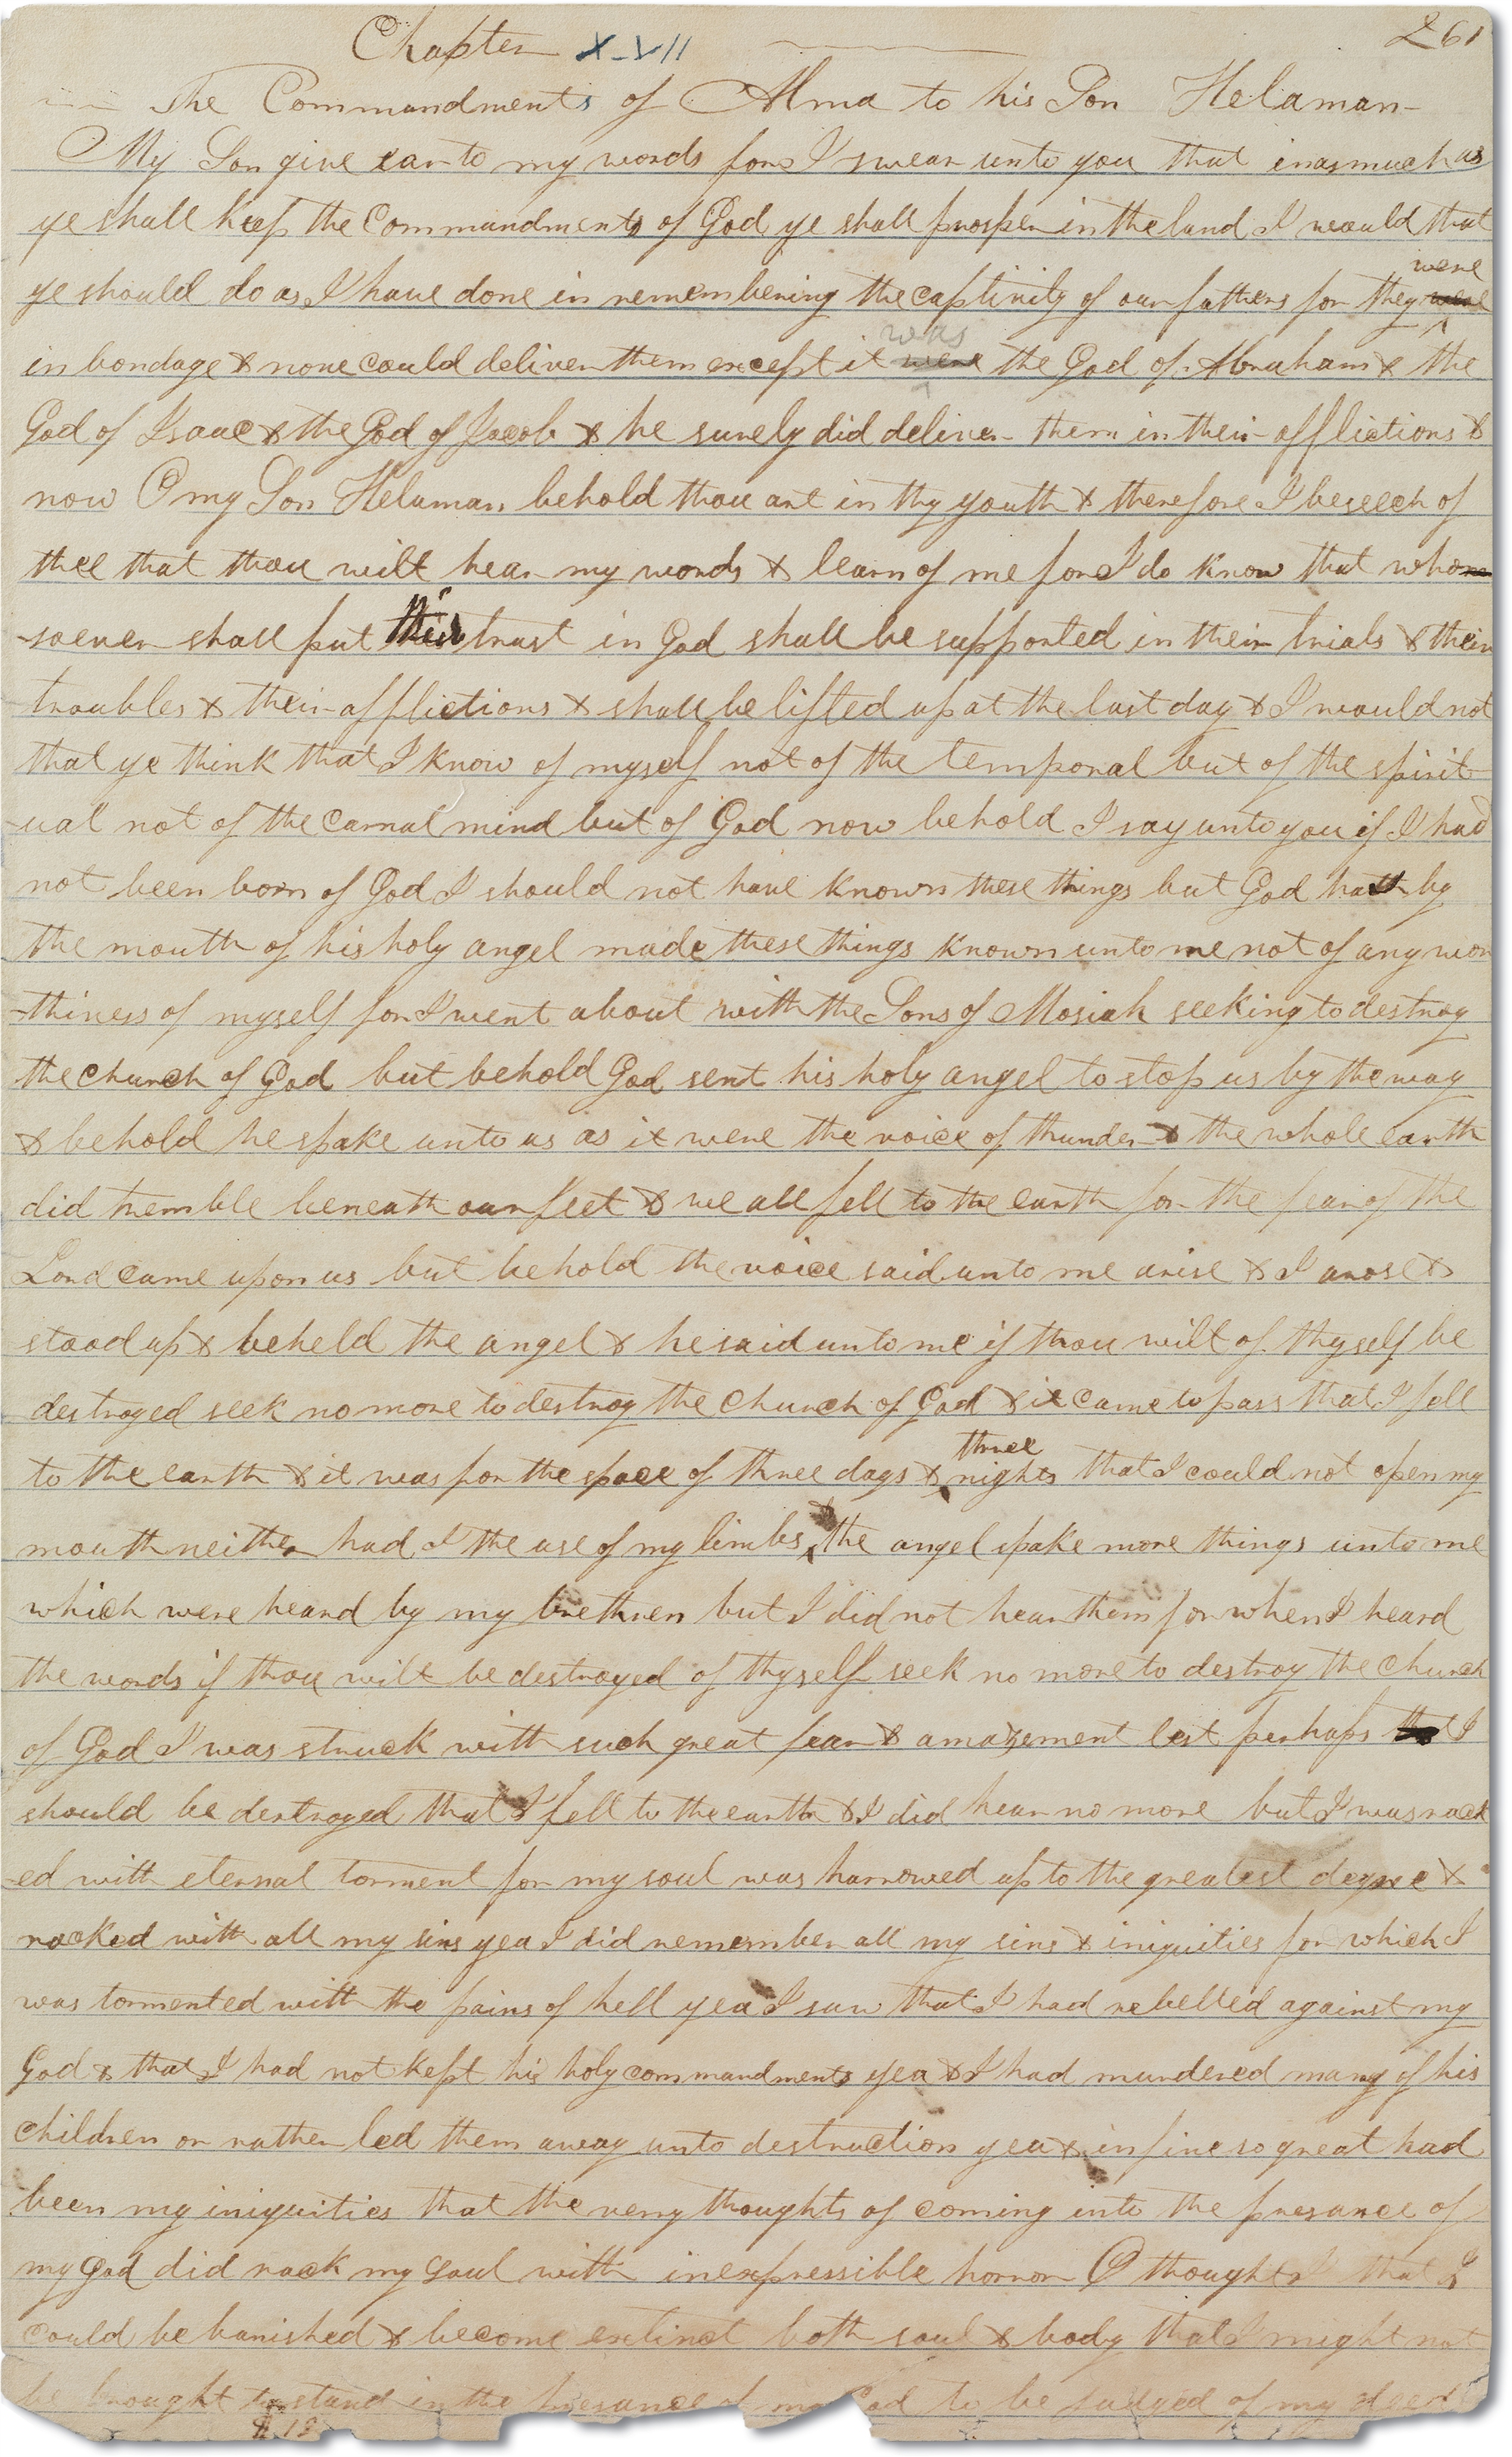 261
Chapter XVII
The Commandments of Alma to his Son Helaman
My Son give ear to my words for I swear unto you that inasmuch as
ye shall keep the Commandments of God ye shall prosper in the land I would that
were
ye should do as I have done in remembering the captivity of our fathers for they were
was
in bondage & none could deliver them except it were the God of Abraham & the
God of Isaac & the God of Jacob & he surely did deliver them in their afflictions &
now O my Son Helaman behold thou art in thy youth & therefore I beseech of
thee that thou wilt hear my words & learn of me for I do know that whom
-soever shall put their trust in God shall be supported in their trials & their
troubles & their afflictions & shall be lifted up at the last day & I would not
that ye think that I know of myself not of the temporal but of the spirit
-ual not of the carnal mind but of God now behold I say unto you if I had
not been born of God I should not have known these things but God hath by
the mouth of his holy angel made these things known unto me not of any wor
-thiness of myself for I went about with the Sons of Mosiah seeking to destroy
the church of God but behold God sent his holy angel to stop us by the way
& behold he spake unto us as it were the voice of thunder & the whole earth
did tremble beneath our feet & we all fell to the earth for the fear of the
Lord came upon us but behold the voice said unto me arise & I arose &
stood up & beheld the angel & he said unto me if thou wilt of thyself be
destroyed seek no more to destroy the church of God & it came to pass that I fell
three
to the earth & it was for the space of three days & nights that I could not open my
mouth neither had I the use of my limbs & the angel spake more things unto me
which were heard by my brethren but I did not hear them for when I heard
the words if thou wilt be destroyed of thyself seek no more to destroy the church
of God I was struck with such great fear & amazement lest perhaps that I
should be destroyed that I fell to the earth & I did hear no more but I was rack
-ed with eternal torment for my soul was harrowed up to the greatest degree &
racked with all my sins yea I did remember all my sins & iniquities for which I
was tormented with the pains of hell yea I saw that I had rebelled against my
God & that I had not kept his holy commandments yea & I had murdered many of his
children or rather led them away unto destruction yea & in fine so great had
been my iniquities that the very thoughts of coming into the presance of
my God did rack my soul with inexpressible horror O thought I that I
could be banished & become extinct both soul & body that I might not
be brought to stand in the presance of my God to be judged of my deeds